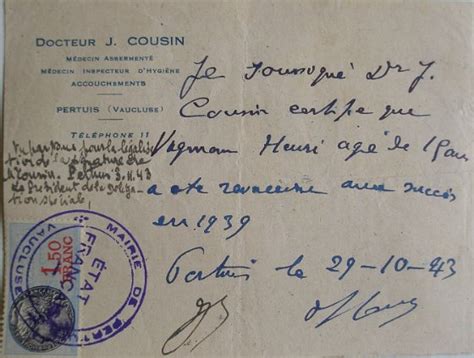 DOCTEUR J. COUSIN
MÉDECIN ASSERMENTÉ
MÉDECIN INSPECTEUR D'HYGIÈNE
ACCOUCHEMENTS
PERTUIS (VAUCLUSE)
TÉLÉPHONE 11
Je soussigné Dr J.
Cousin certifie que
Henri agé de
a été avec succès
en 1939
Pertuis le 29-10-43
Vu par nous pour la légalisa
tion de la signature de
Cousin. Pertuis 3.11.43
Le Président de la Déléga
tion spéciale,
MAIRIE DE PERTUIS
VAUCLUSE
ETAT
FRANC
1,50
FRANC